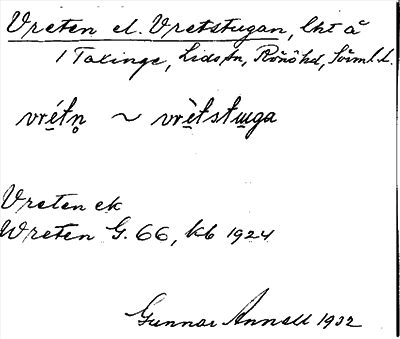 Vreten el. Vretstugan, lht å
1 Taxinge, Lids tn, Rönö hd, Sörml. l.
vrétn̥ ~ vrètstɯga
Vreten ek
Wreten G. 66, kb 1924
Gunnar Annell 1932